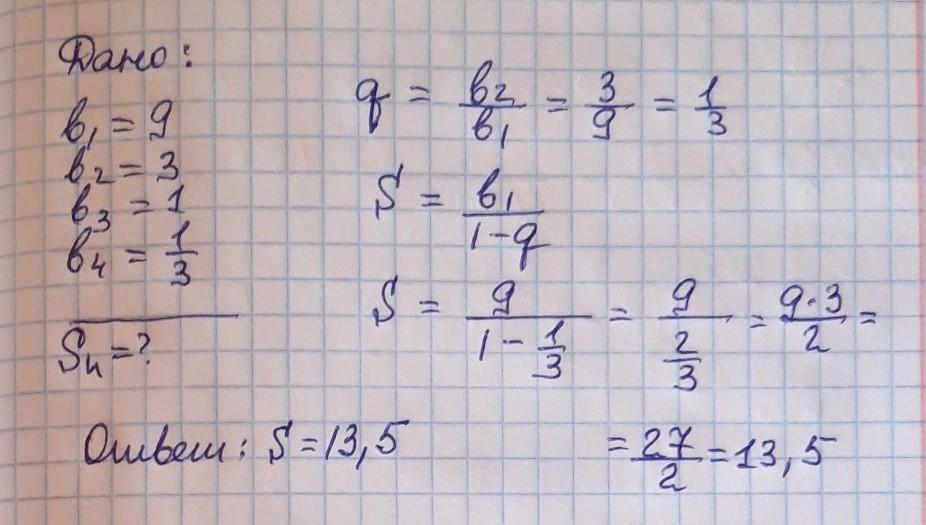 Дано:
b₁ = 9
b₂ = 3
b₃ = 1
b₄ = 1/3
Sн = ?
q = b₂/b₁ = 3/9 = 1/3
S = b₁/(1-q)
S = 9/(1 - 1/3) = 9/(2/3) = 9·3/2 =
= 27/2 = 13,5
Ответ: S = 13,5